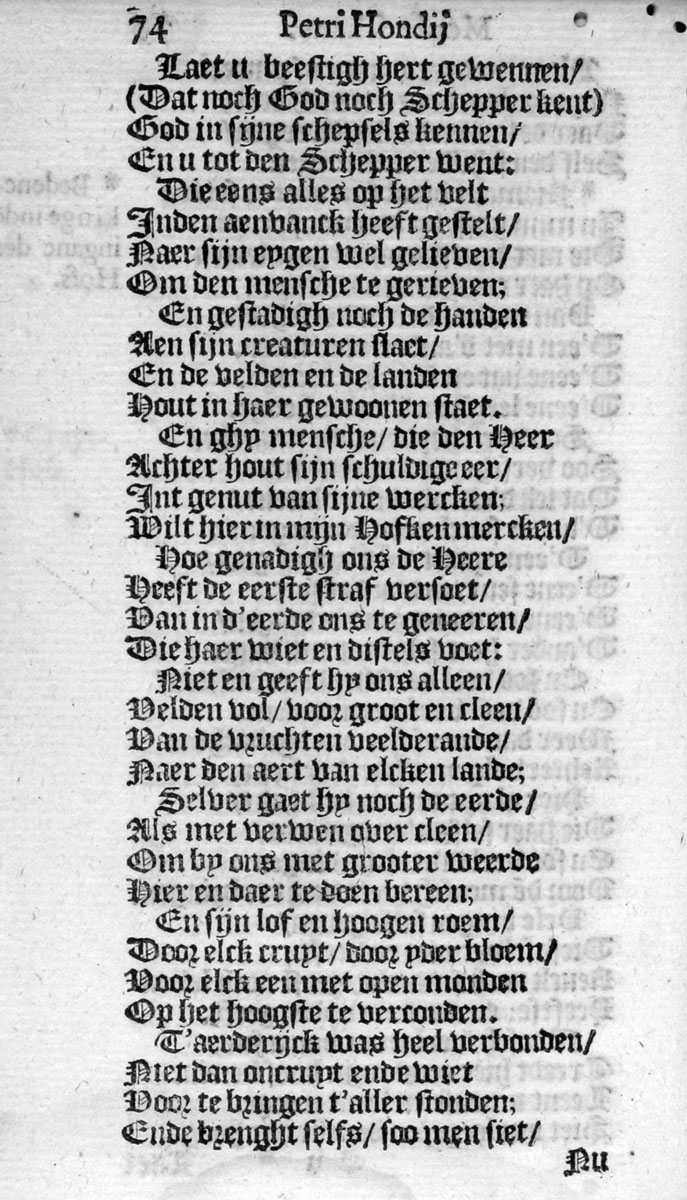 74 Petri Hondij
Laet u beestigh hert gewennen/
(Dat noch God noch Schepper kent)
God in sijne schepsels kennen/
En u tot den Schepper went:
Die eens alles op het velt
Inden aenvanck heeft gestelt/
Naer sijn eygen wel gelieven/
Om den mensche te gerieven;
En gestadigh noch de handen
Aen sijn creaturen slaet/
En de velden en de landen
Hout in haer gewoonen staet.
En ghy mensche/ die den Heer
Achter hout sijn schuldige eer/
Int genut van sijne wercken;
Wilt hier in mijn Hofken mercken/
Hoe genadigh ons de Heere
Heeft de eerste straf versoet/
Van in d'eerde ons te geneeren/
Die haer wiet en distels voet:
Niet en geeft hy ons alleen/
Velden vol/ voor groot en cleen/
Van de vruchten veelderande/
Naer den aert van elcken lande;
Selver gaet hy noch de eerde/
Als met verwen over cleen/
Om by ons met grooter weerde
Hier en daer te doen bereen;
En sijn lof en hoogen roem/
Door elck cruyt/ door yder bloem/
Voor elck een met open monden
Op het hoogste te verconden.
T'aerderijck was heel verbonden/
Niet dan oncruyt ende wiet
Voor te bringen t'aller stonden;
Ende brenght selfs/ soo men siet/
Nu